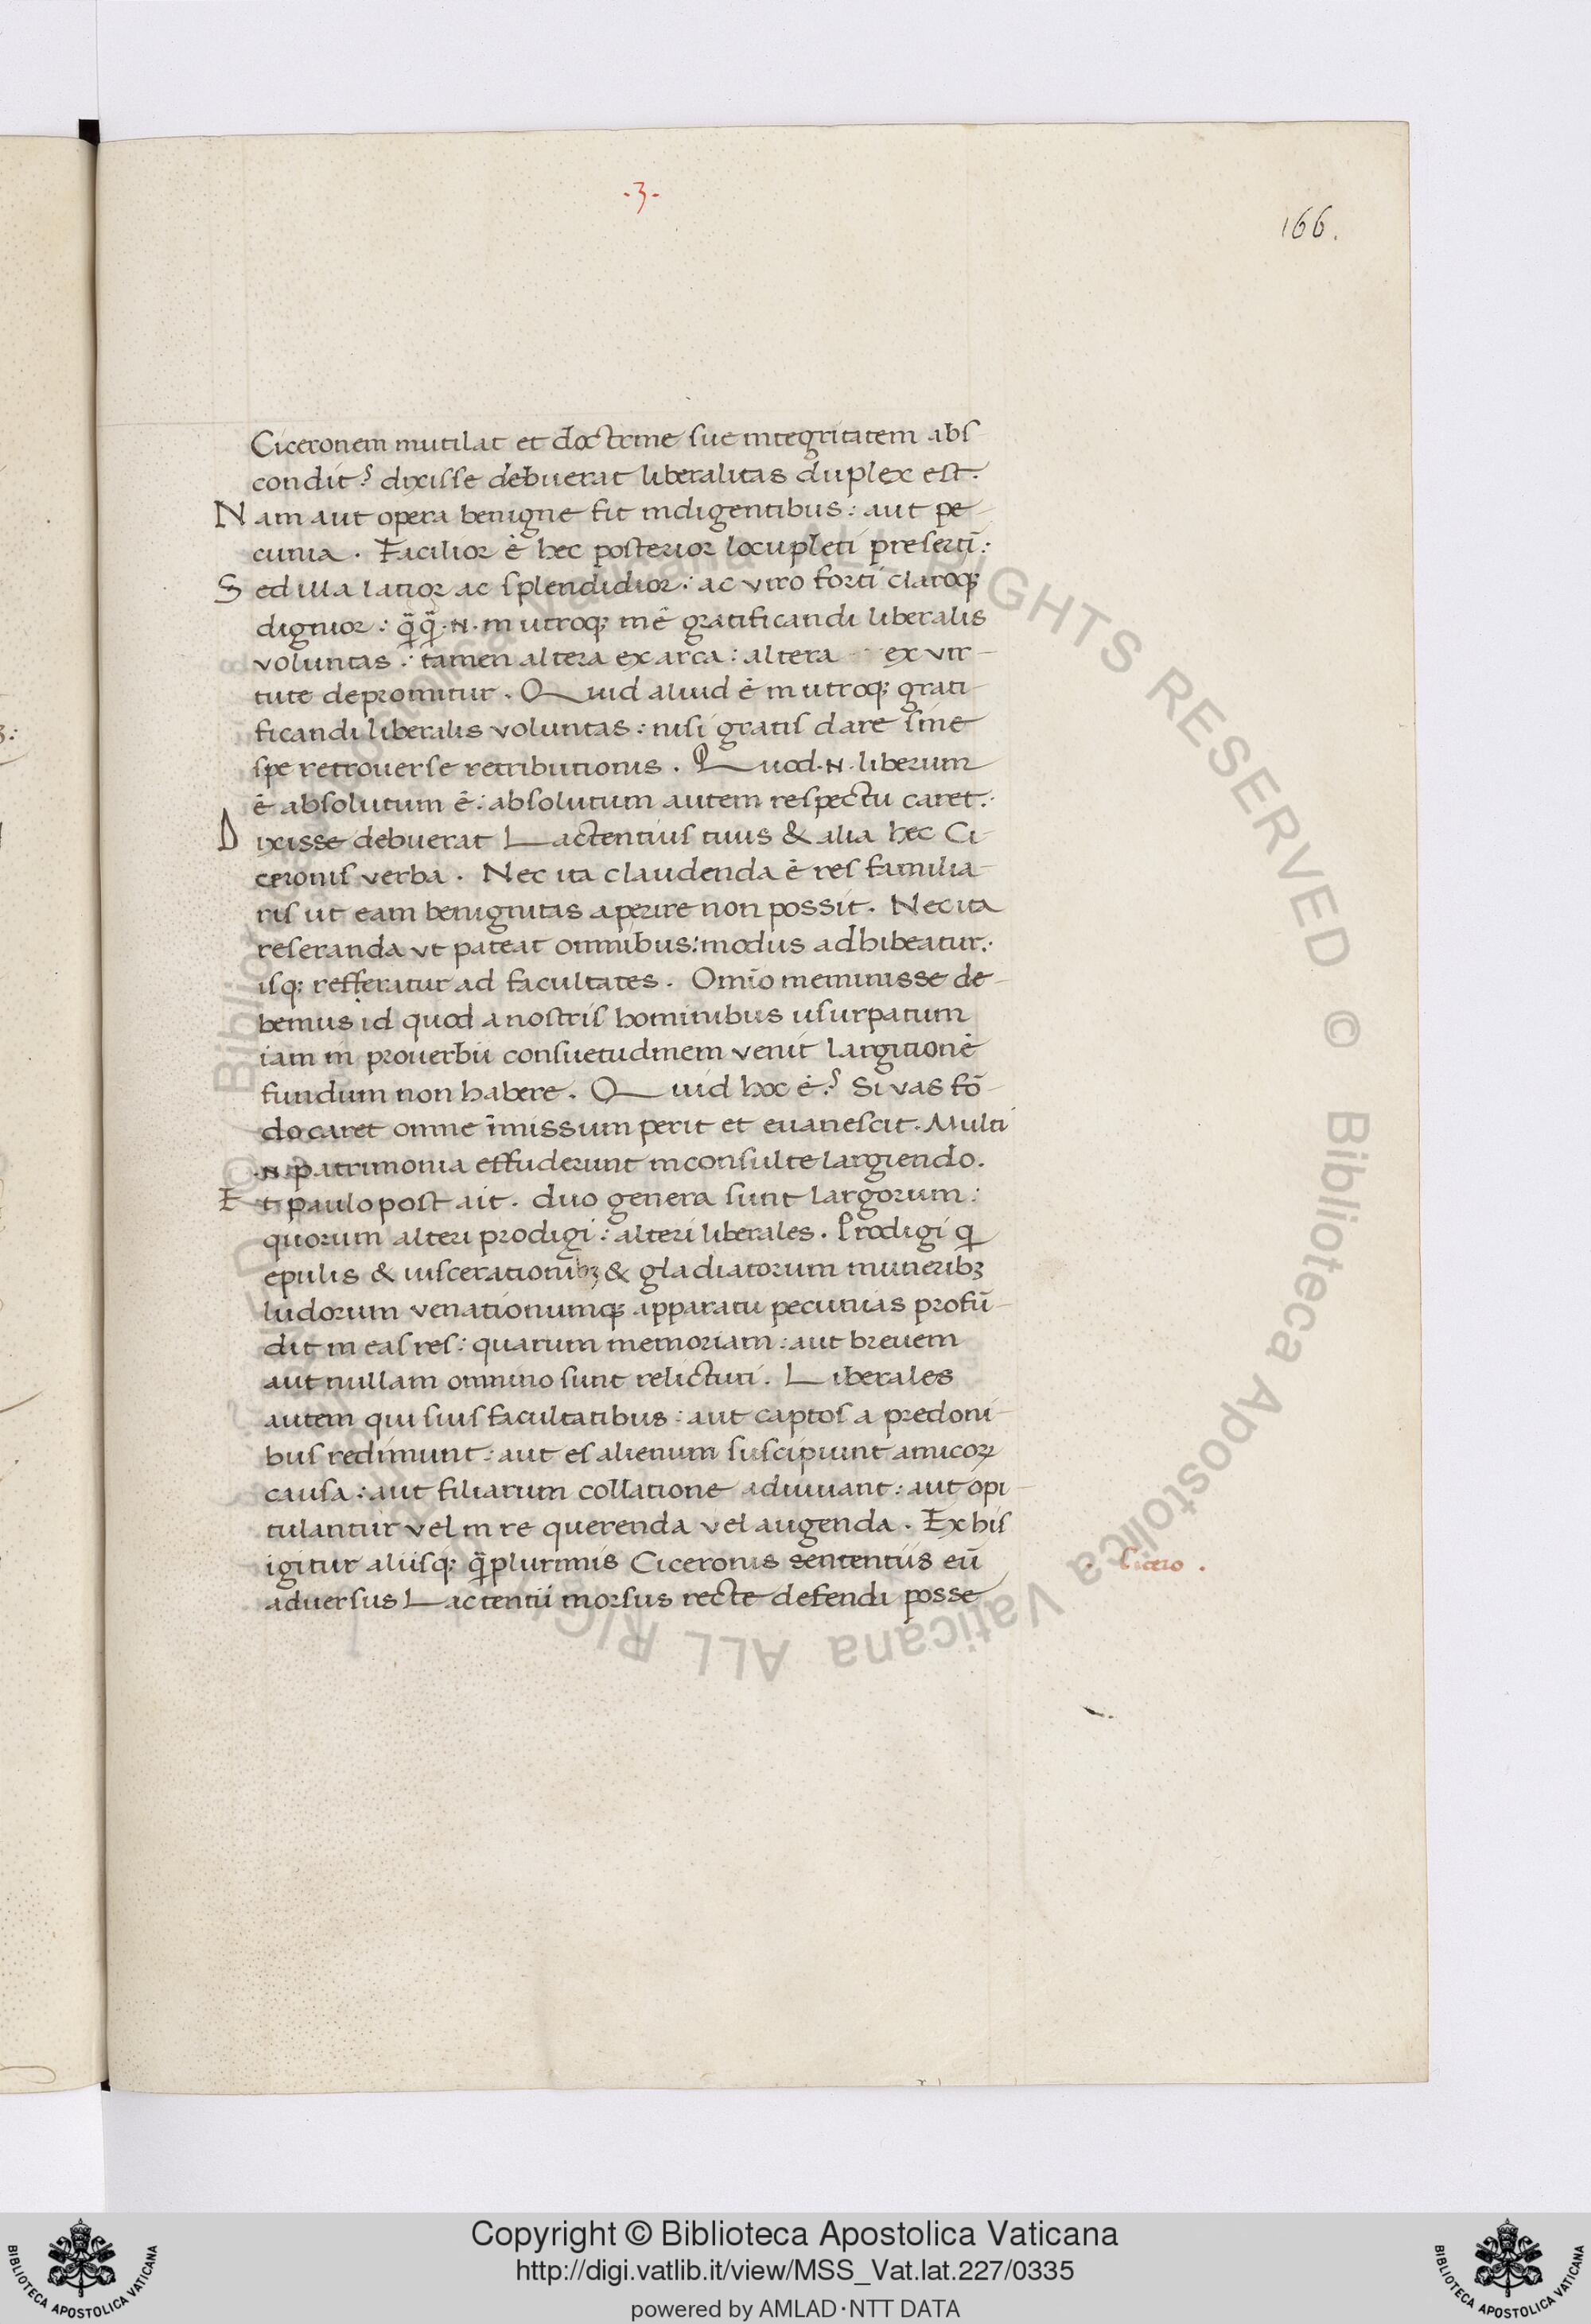 ·3·
166.
Ciceronem mutilat et doctrine sue integritatem abs
condit? dixisse debuerat liberalitas duplex est.
Nam aut opera benigne fit indigentibus: aut pe-
cunia. Facilior ē hec posterior locupleti presertī:
Sed illa latior ac splendidior: ac viro forti claroq;
dignior: q̄q̄ ·N· in utroq; inē gratificandi liberalis
voluntas: tamen altera ex arca: altera ex vir-
tute depromitur. Quid aliud ē in utroq; grati-
ficandi liberalis voluntas: nisi gratis dare sine
spe retrouerse retributionis. Quod ·N· liberum
ē absolutum ē: absolutum autem respectu caret:
Dixisse debuerat Lactentius tuus & alia hec Ci-
ceronis verba. Nec ita claudenda ē res familia-
ris ut eam benignitas aperire non possit. Nec ita
reseranda vt pateat omnibus: modus adhibeatur:
isq; refferatur ad facultates. Omīo meminisse de-
bemus id quod a nostris hominibus usurpatum
iam in prouerbii consuetudinem venit largitionē
fundum non habere. Quid hoc ē? Si vas fō-
do caret omne īmissum perit et euanescit. Multi
·N· patrimonia effuderunt inconsulte largiendo.
Et paulo post ait. duo genera sunt largorum:
quorum alteri prodigi: alteri liberales. Prodigi q̄
epulis & uiscerationibꝫ & gladiatorum muneribꝫ
ludorum venationumq; apparatu pecunias profū-
dit in eas res: quarum memoriam: aut breuem
aut nullam omnino sunt relicturi. Liberales
autem qui suis facultatibus: aut captos a predoni-
bus redimunt: aut es alienum suscipiunt amicoꝝ
causa: aut filiarum collatione adiuuant: aut opi-
tulantur vel in re querenda vel augenda. Ex his
igitur aliisq; q̄plurimis Ciceronis sententiis eū
Cicero.
aduersus Lactentii morsus recte defendi posse
© Biblioteca Apostolica Vaticana ALL RIGHTS RESERVED
Copyright © Biblioteca Apostolica Vaticana
http://digi.vatlib.it/view/MSS_Vat.lat.227/0335
powered by AMLAD·NTT DATA
BIBLIOTECA APOSTOLICA VATICANA
BIBLIOTECA APOSTOLICA VATICANA